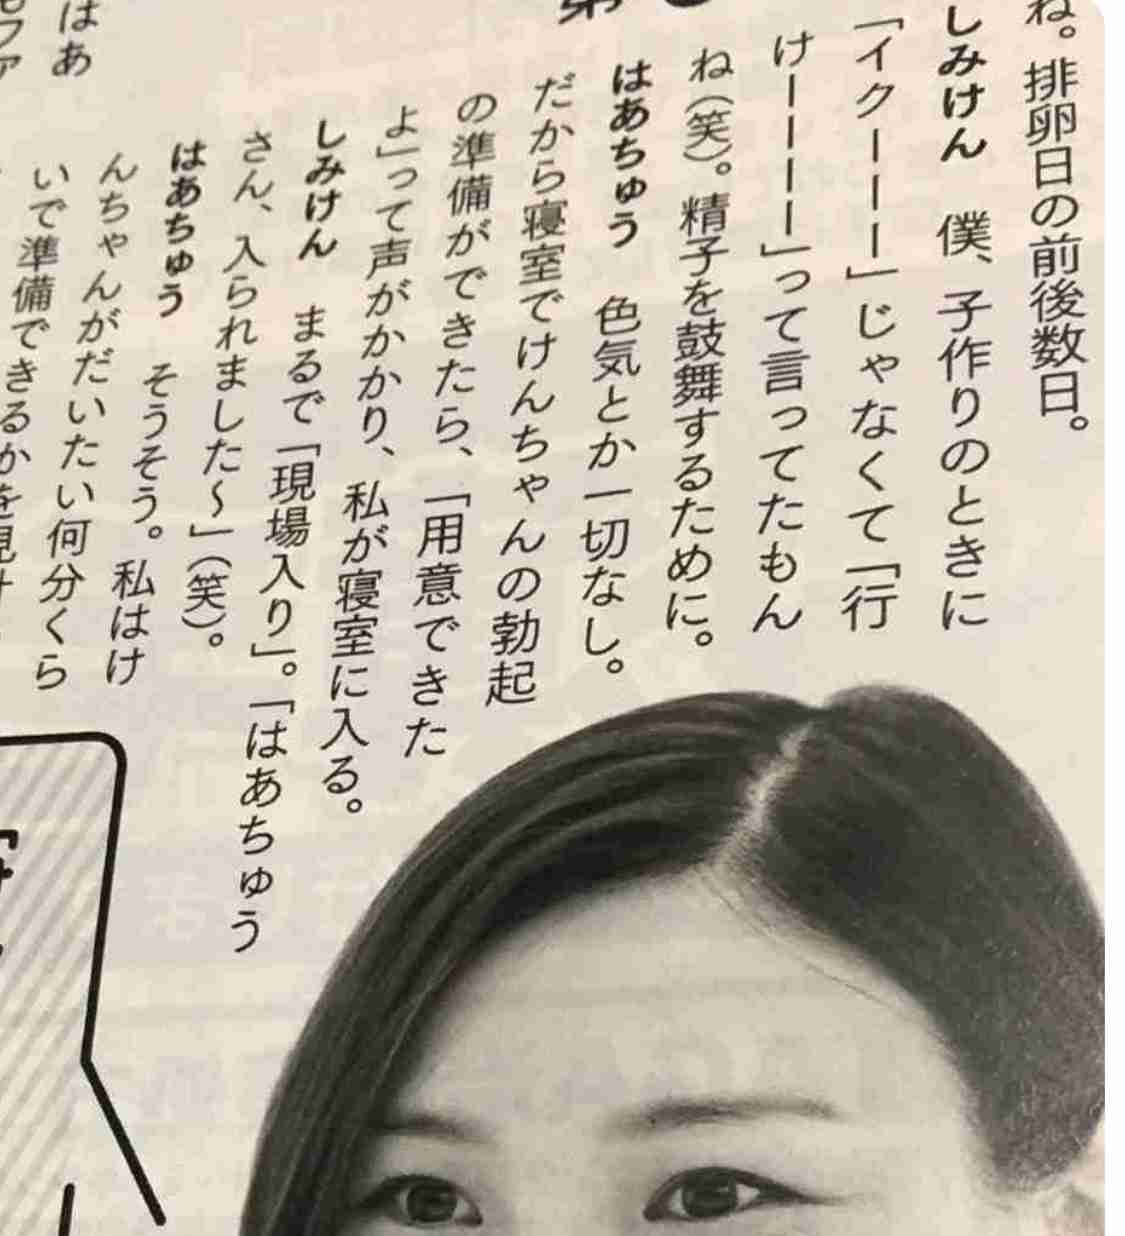 ね。排卵日の前後数日。
しみけん　僕、子作りのときに
「イクーーー」じゃなくて「行
けーーーー」って言ってたもん
ね(笑)。精子を鼓舞するために。
はあちゅう　色気とか一切なし。
だから寝室でけんちゃんの勃起
の準備ができたら、「用意できた
よ」って声がかかり、私が寝室に入る。
しみけん　まるで「現場入り」。「はあちゅう
さん、入られました〜」(笑)。
はあちゅう　そうそう。私はけ
んちゃんがだいたい何分くら
いで準備できるかを見
はあ